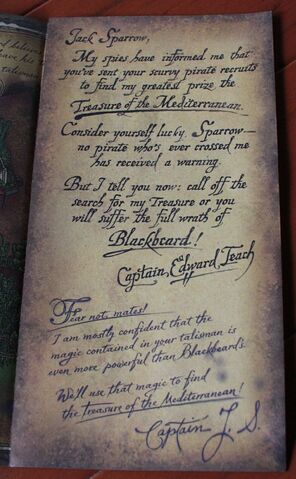 Jack Sparrow,
My spies have informed me that
you've sent your scurvy pirate recruits
to find my greatest prize the
Treasure of the Mediterranean.
Consider yourself lucky, Sparrow—
no pirate who's ever crossed me
has received a warning.
But I tell you now: call off the
search for my Treasure or you
will suffer the full wrath of
Blackbeard!
Captain Edward Teach
Fear not, mates!
I am mostly confident that the
magic contained in your talisman is
even more powerful than Blackbeard's.
We'll use that magic to find
the Treasure of the Mediterranean!
Captain J. S.